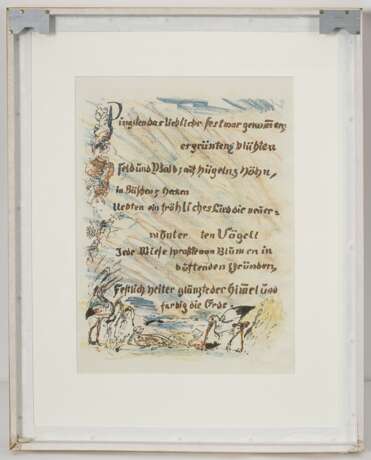 Pingsten das liebliche fest war gekom̅men;
ergrünten; blühten
feld und Wald; auf hügeln; höhn,
in Büschen; Hecken
Uebten ein fröhliches Lied die neuer-
munter ten Vögel!
Jede Wiese sproßte von Blumen in
düftenden Gründen,
festlich heiter glänzte der Him̅el und
farbig die Erde.